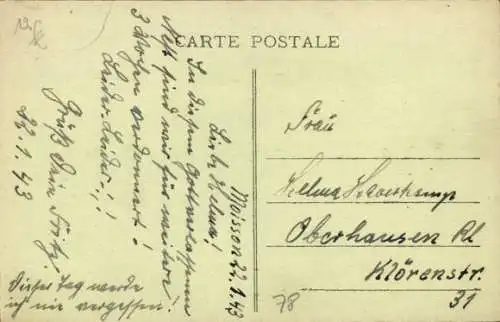 CARTE POSTALE
Moisson 22.1.43
Liebe Helma!
In diesem Gottverlassenen
Nest sind wir für weitere
3 Wochen verdammt!
Leider-Leider-!,!
Gruß Dein Fritz.
22.1.43
Dieser Tag werde
ich nie vergessen!
Frau
Helma Haverkamp
Oberhausen Rl
Klörenstr.
31
78